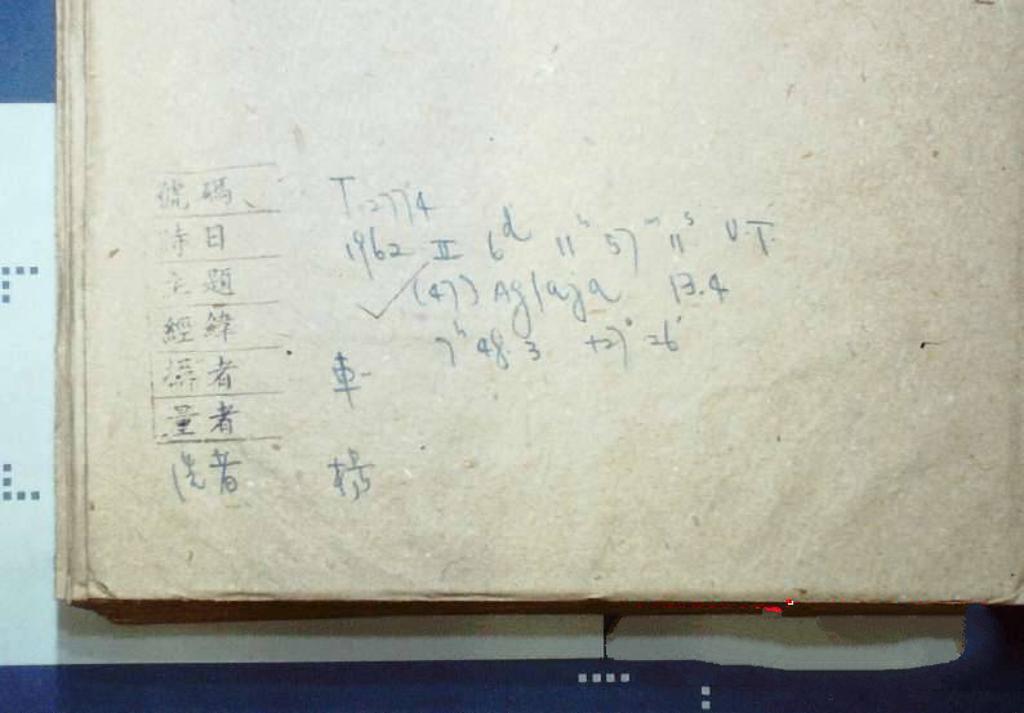 號碼 T.2774
時日 1962 II 6ᵈ 11ʰ 57ᵐ 11ˢ U.T.
主題 (47) Aglaja 13.4
經緯 7ʰ 48.3 +27° 26'
攝者 車
量者
洗者 楊